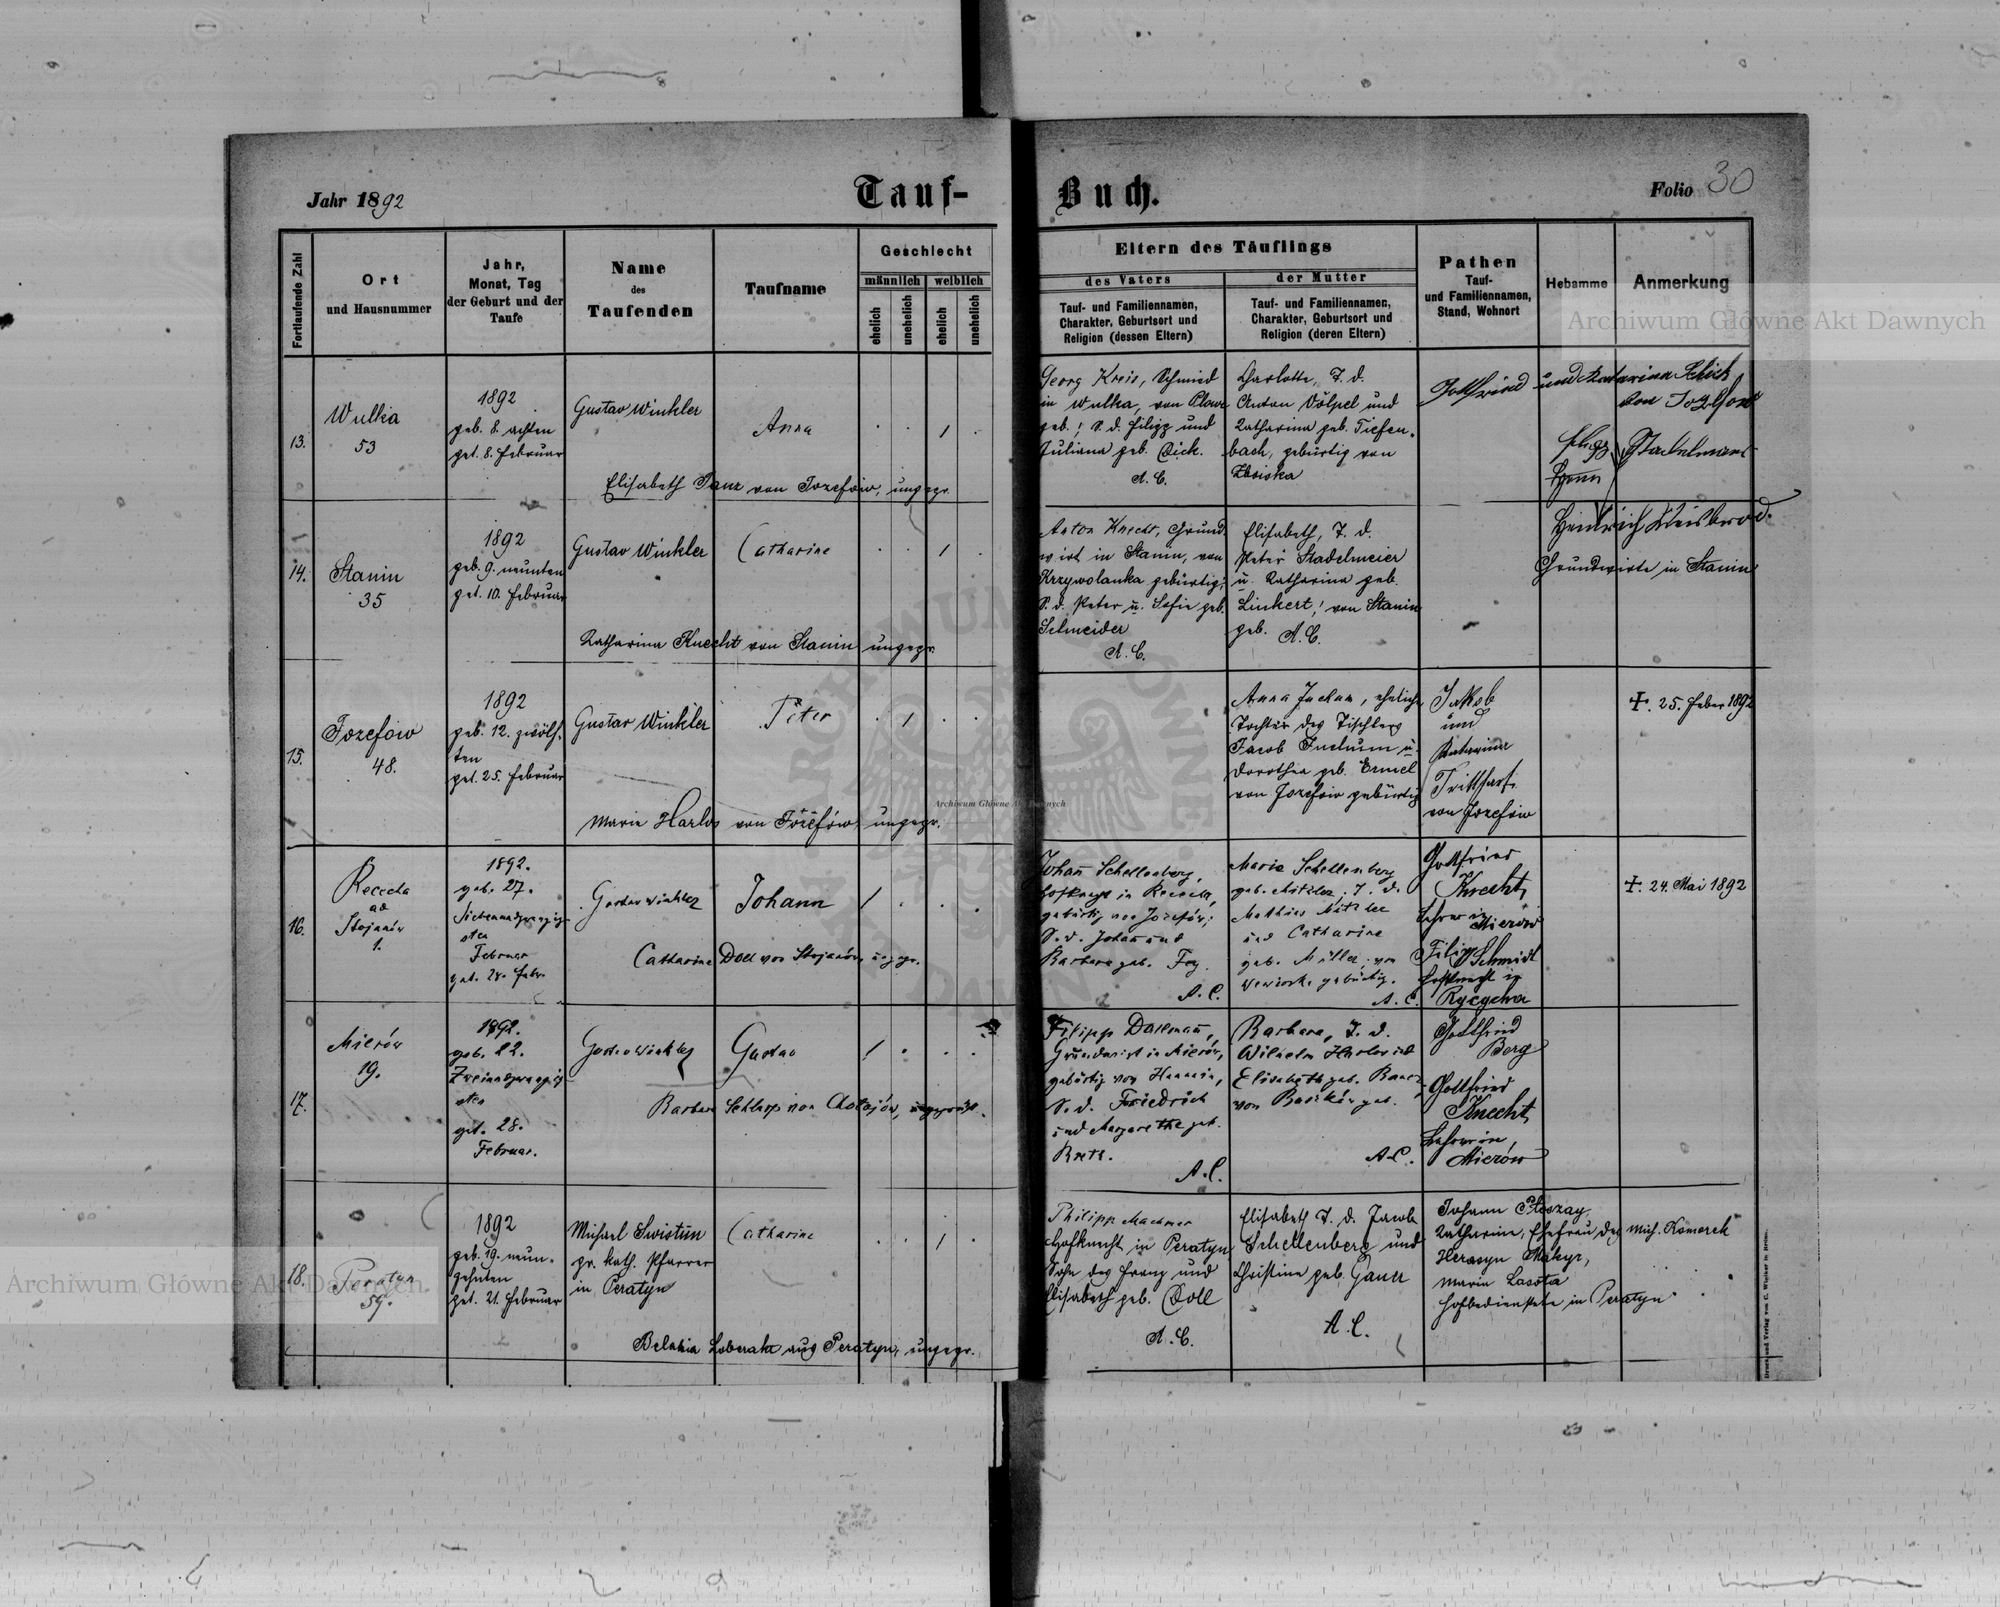 Jahr 1892
Tauf-
Buch.
Folio 30
Fortlaufende Zahl
Ort
und Hausnummer
Jahr,
Monat, Tag
der Geburt und der
Taufe
Name
des
Taufenden
Taufname
Geschlecht
männlich
weiblich
ehelich
unehelich
ehelich
unehelich
Eltern des Täuflings
des Vaters
Tauf- und Familiennamen,
Charakter, Geburtsort und
Religion (dessen Eltern)
der Mutter
Tauf- und Familiennamen,
Charakter, Geburtsort und
Religion (deren Eltern)
Pathen
Tauf-
und Familiennamen,
Stand, Wohnort
Hebamme
Anmerkung
13.
Wulka
53
1892
geb. 8. achten
get. 8. Februar
Gustav Winkler
Anna
Elisabeth Manz von Jozefów, ungepr.
Georg Kreis, Schmied
in Wulka, von
geb.; S. d. Filipp und
Juliana geb. Dick.
A. C.
Charlotte, T. d.
Anton Völpel und
Katharina geb. Tiefen-
bach, gebürtig von
Zboiska
Gottfried und Katarina
von
14.
Stanin
35
1892
geb. 9. neunten
get. 10. Februar
Gustav Winkler
Catharine
Katharina Knecht von Stanin ungepr.
Anton Knecht, Grund
wirt in Stanin, von
Krzywolanka gebürtig;
S. d. Peter u. Sofie geb.
Schneider
A. C.
Elisabeth, T. d.
Peter Stadelmeier
u. Katharina geb.
Linkert; von Stanin
geb. A. C.
Heinrich
Grundwirte in Stanin
15.
Jozefow
48.
1892
geb. 12. zwölf-
ten
get. 25. Februar
Gustav Winkler
Peter
Marie Harlos von Jozefów, ungepr.
Anna Juckum, eheliche
Tochter des Tischlers
Jacob Juckum u.
Dorothea geb. Ermel
von Jozefow gebürtig
Jakob
und
Katarina
von Jozefow
+. 25. Feber 1892
16.
Rececha
ad
Stojanów
1.
1892.
geb. 27.
Siebenundzwanzig-
sten
Februar
get. 28. Febr.
Gustav Winkler
Johann
Catharine Doll von Stojanów, ungepr.
Johann Schellenberg,
Hofknecht in
gebürtig von Józefów;
S. d. Johann und
Barbara geb. Fey.
A. C.
Marie Schellenberg
geb. Mitzler, T. d.
Mathias Mitzler
und Catharine
geb. Müller, von
gebürtig.
A. C.
Gottfried
Knecht,
Lehrer in
Mierów
Filipp Schmidt
Hofknecht in
Rzeczycha
+. 24. Mai 1892
17.
Mierów
19.
1892.
geb. 22.
Zweiundzwanzig
sten
get. 28.
Februar.
Gustav Winkler
Gustav
Barbara Schlapp von Chołojów, ungeprüft.
Filipp Dallmann,
Grundwirt in Mierów,
gebürtig von Hanunin,
S. d. Friedrich
und Margarethe geb.
A. C.
Barbara, T. d.
Wilhelm Harlos und
Elisabeth geb.
von geb.
A. C.
Gottfried
Berg
Gottfried
Knecht,
Lehrer in
Mierów
18.
Peratyn
59.
1892
geb. 19. neun-
zehnten
get. 21. Februar
Michael Swistun
gr. kath. Pfarrer
in Peratyn
Catharine
Loberak aus Peratyn, ungepr.
Philipp Machmer
Hofknecht in Peratyn
Sohn des Franz und
Elisabeth geb. Doll
A. C.
Elisabeth T. d. Jacob
Schellenberg und
Christine geb. Gauer
A. C.
Johann Płoszay,
Katharine, Ehefrau des
Herasyn Makyr,
Maria Lasota
Hofbedienstete in Peratyn
Mich. Komarek
Druck und Verlag von C. Winiker in Brünn.
Archiwum Główne Akt Dawnych
Archiwum Główne Akt Dawnych
Archiwum Główne Akt Dawnych